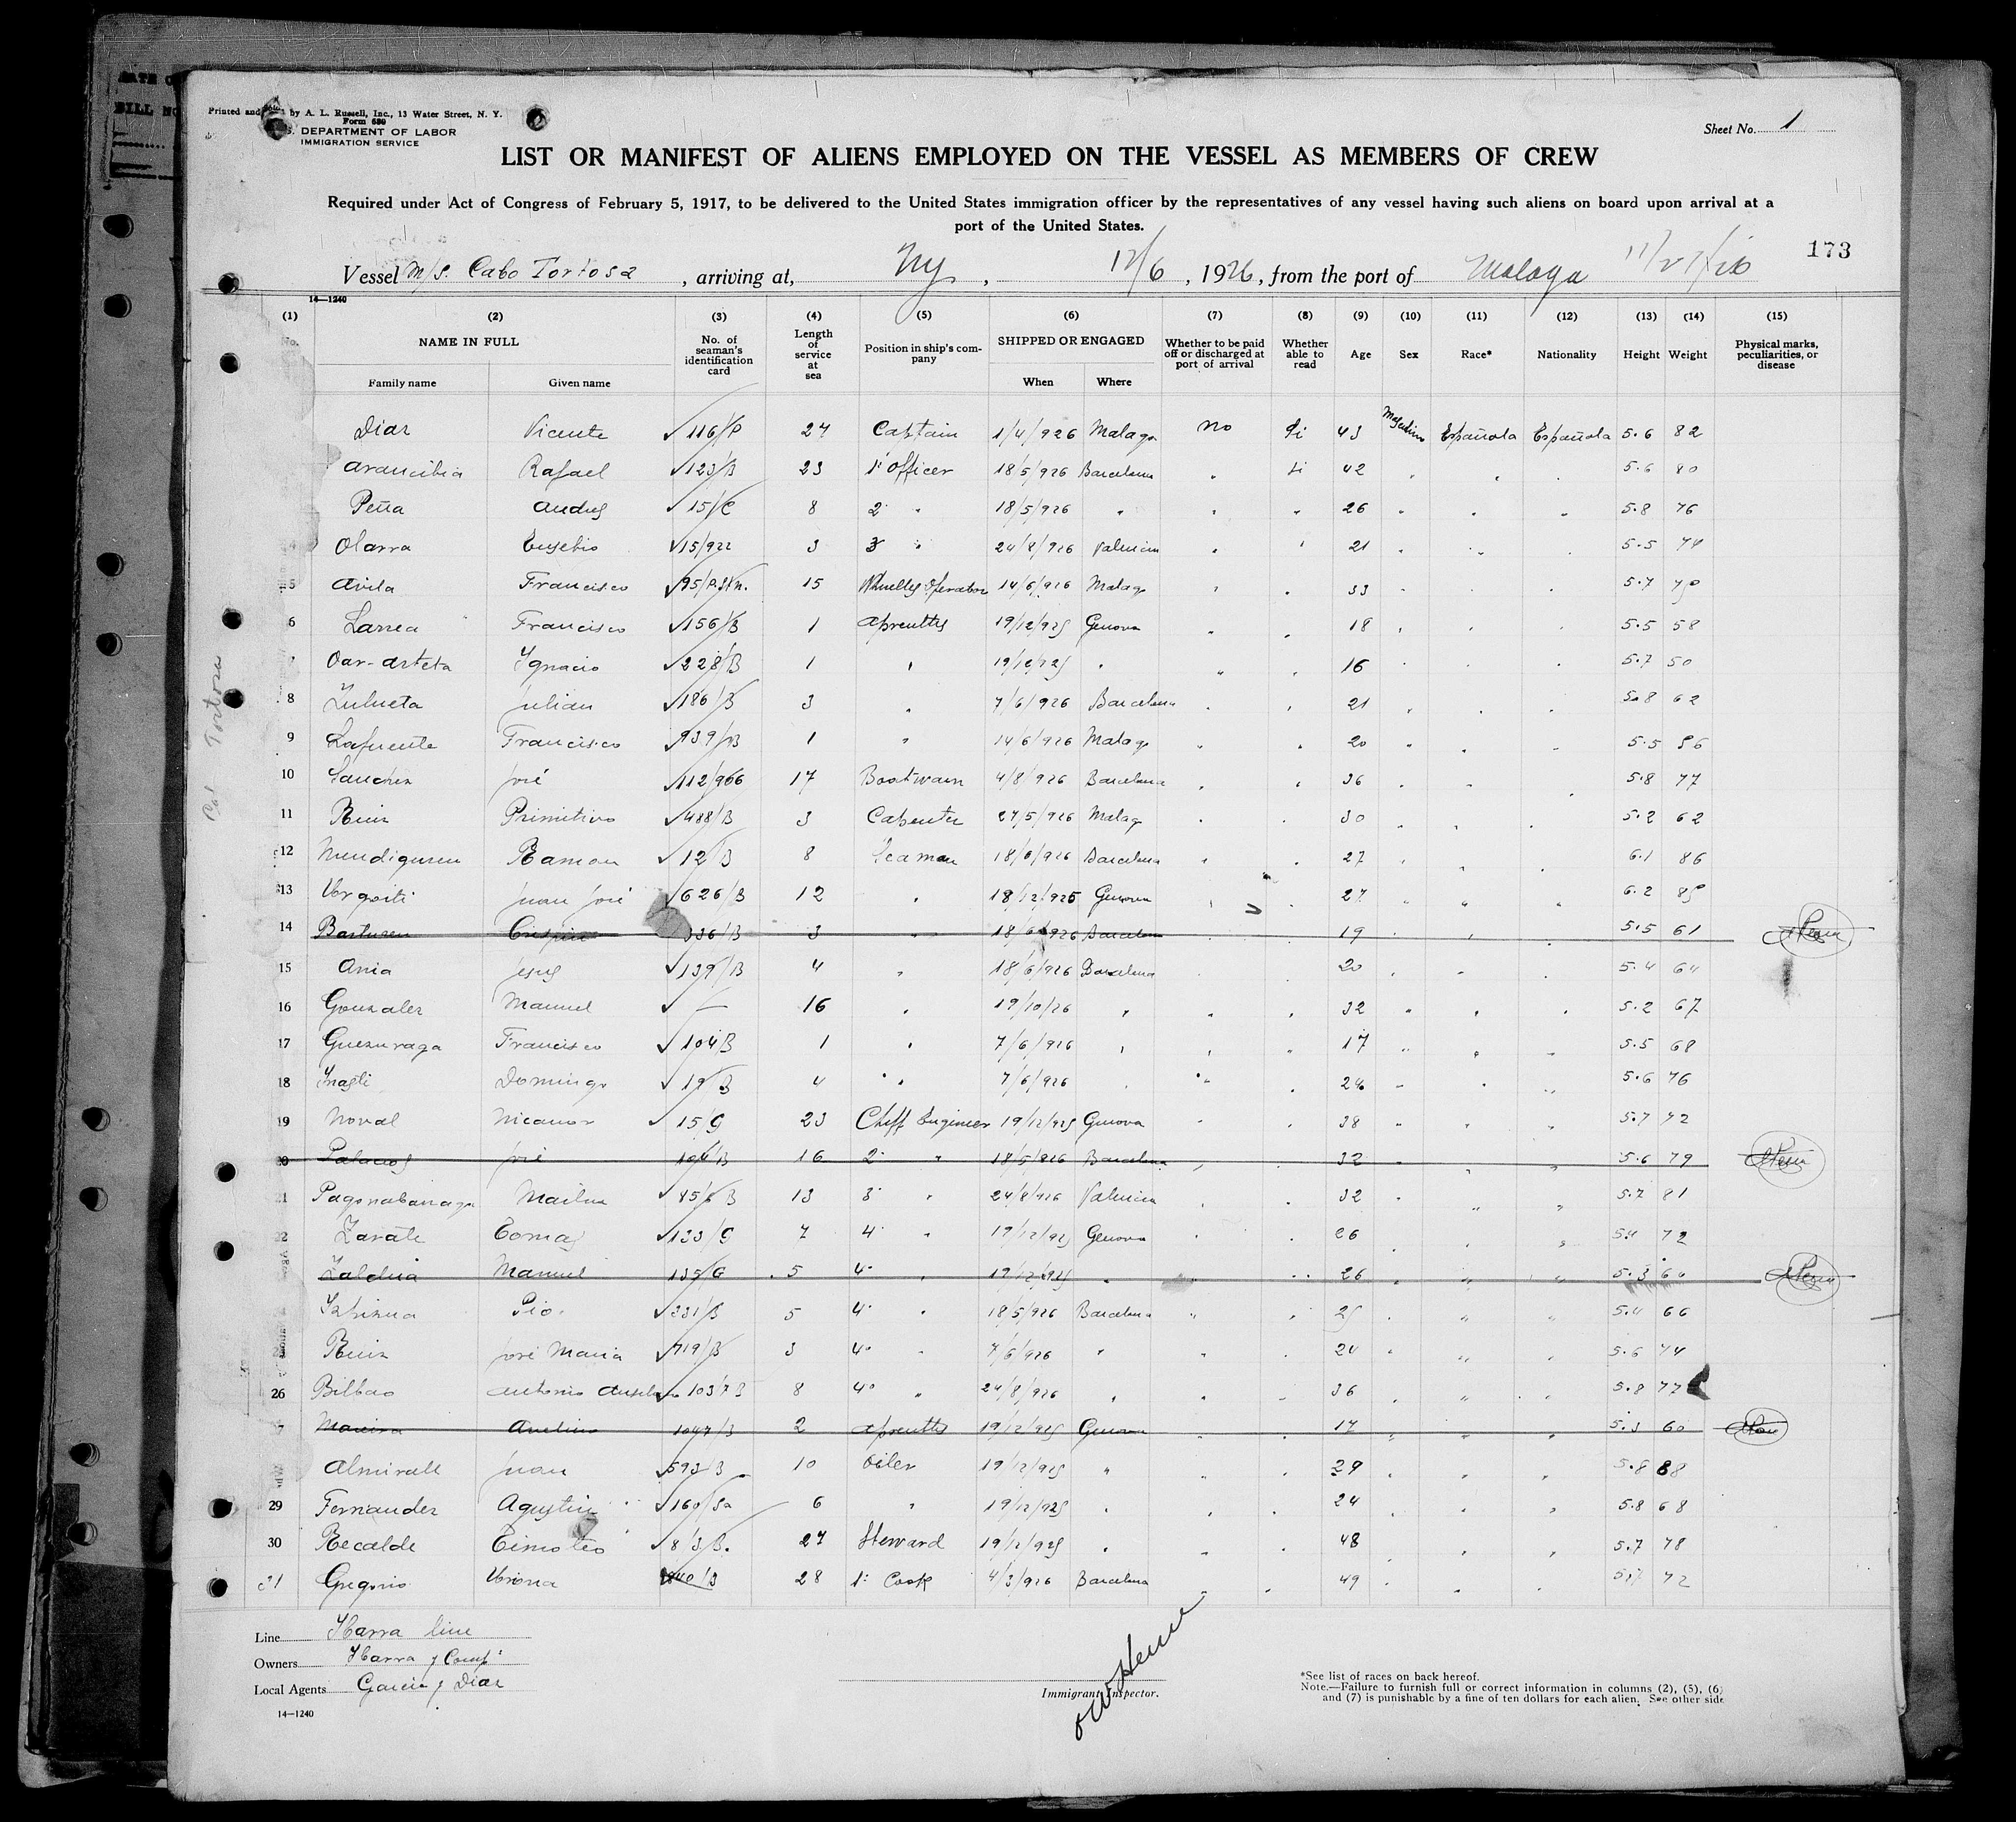 Printed and by A. L. Russell, Inc., 13 Water Street, N. Y.
Form 680
DEPARTMENT OF LABOR
IMMIGRATION SERVICE
Sheet No. 1
LIST OR MANIFEST OF ALIENS EMPLOYED ON THE VESSEL AS MEMBERS OF CREW
Required under Act of Congress of February 5, 1917, to be delivered to the United States immigration officer by the representatives of any vessel having such aliens on board upon arrival at a
port of the United States.
173
Vessel M/S. Cabo Tortosa, arriving at, Ny, 12/6, 1926, from the port of Malaga 11/27/26
14—1240
(1) (2) (3) (4) (5) (6) (7) (8) (9) (10) (11) (12) (13) (14) (15)
No. NAME IN FULL No. of seaman's identification card Length of service at sea Position in ship's company SHIPPED OR ENGAGED Whether to be paid off or discharged at port of arrival Whether able to read Age Sex Race* Nationality Height Weight Physical marks, peculiarities, or disease
Family name Given name When Where
Diaz Vicente 116/P 27 Captain 1/4/926 Malaga no Si 43 Española Española 5.6 82
Arancibia Rafael 123/B 23 1º Officer 18/5/926 Barcelona " Si 42 " " " 5.6 80
Peña Andres 15/C 8 2º " 18/5/926 " " " 26 " " " 5.8 76
Olarra Eusebio 15/922 3 3 " 24/8/926 Valencia " " 21 " " " 5.5 74
5 Avila Francisco 15 Operator 14/6/926 Malaga " " 33 " " " 5.7 70
6 Larrea Francisco 156/B 1 Aprenttes 19/12/925 Genova " " 18 " " " 5.5 58
7 Oar-Arteta Ygnacio 228/B 1 " 19/12/925 " " " 16 " " " 5.7 50
8 Zulueta Julian 186/B 3 " 7/6/926 Barcelona " " 21 " " " 5.8 62
9 Lafuente Francisco 939/B 1 " 14/6/926 Malaga " " 20 " " " 5.5 56
10 Sanchez José 17 Boatwain 4/8/926 Barcelona " " 36 " " " 5.8 77
11 Ruiz Primitivo 488/B 3 Capenter 27/5/926 Malaga " " 30 " " " 5.2 62
12 Mendiguren Ramon 12/B 8 Seaman 18/6/926 Barcelona " " 27 " " " 6.1 86
13 Juan José 626/B 12 " 18/12/925 Genova " " 27 " " " 6.2 85
14 Basturen Crispin 336/B 3 " 18/6/926 Barcelona " " 19 " " " 5.5 61
15 Ania Jesus 139/B 4 " 18/6/926 Barcelona " " 20 " " " 5.4 64
16 Gonzalez Manuel — 16 " 19/10/26 " " " 32 " " " 5.2 67
17 Guezuraga Francisco 104B 1 " 7/6/926 " " " 17 " " " 5.5 68
18 Domingo 19/B 4 " 7/6/926 " " " 24 " " " 5.6 76
19 Noval Nicanor 15 G 23 Chiff Engineer 19/12/925 Genova " " 38 " " " 5.7 72
20 Palacios José 104/B 16 2º " 18/5/926 Barcelona " " 32 " " " 5.6 79
21 13 3º " 24/8/926 Valencia " " 32 " " " 5.7 81
22 Zarate Tomas 133/G 7 4º " 19/12/925 Genova " " 26 " " " 5.4 72
Zaldua Manuel 135/G 5 4º " 19/12/925 " " " 26 " " " 5.3 60
Pio 331/B 5 4º " 18/5/926 Barcelona " " 25 " " " 5.4 66
Ruiz José Maria 719/B 3 4º " 7/6/926 " " " 24 " " " 5.6 74
26 Bilbao Antonio 8 4º " 24/8/926 " " " 36 " " " 5.8 77
7 Avelino 1047/B 2 Aprenttes 19/12/925 Genova " " 17 " " " 5.3 60
Almirall Juan 593 B 10 Oiler 19/12/925 " " " 29 " " " 5.8 88
29 Fernandez Agustin 160/Sa 6 " 19/12/925 " " " 24 " " " 5.8 68
30 Recalde Timoteo 8/3/B. 27 Steward 19/12/925 " " " 48 " " " 5.7 78
31 Gregorio 28 1º Cook 4/3/926 Barcelona " " 49 " " " 5.7 72
Line Ybarra line
Owners Ybarra y Compª
Local Agents Garcia y Diaz
14—1240
Immigrant Inspector.
*See list of races on back hereof.
Note.—Failure to furnish full or correct information in columns (2), (5), (6)
and (7) is punishable by a fine of ten dollars for each alien. See other side